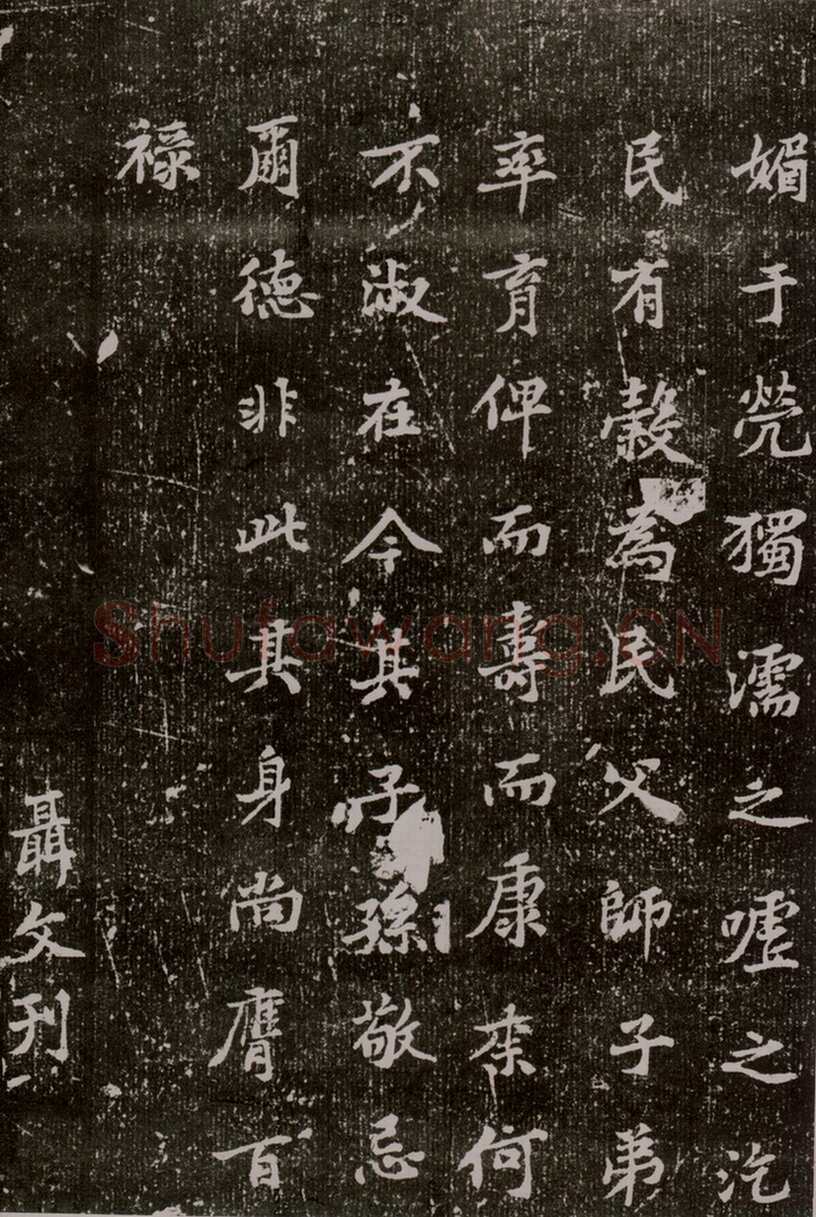 媚于煢獨濡之嘘之汔
民有穀為民父師子弟
率育俾而壽而康柰何
不淑在今其子孫敬忌
爾德非此其身尚膺百
禄
聶文刊
Shufawang.CN